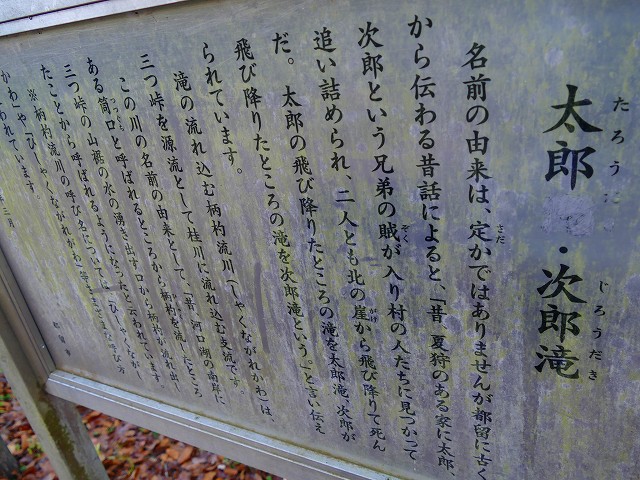 太郎・次郎滝
たろう
じろうだき
名前の由来は、定かではありませんが都留に古く
さだ
から伝わる昔話によると、「昔、夏狩のある家に太郎、
次郎という兄弟の賊が入り村の人たちに見つかって
ぞく
追い詰められ、二人とも北の崖から飛び降りて死ん
がけ
だ。太郎の飛び降りたところの滝を太郎滝、次郎が
飛び降りたところの滝を次郎滝という。」と言い伝え
られています。
滝の流れ込む柄杓流川(しゃくながれかわ)は、
三つ峠を源流として桂川に流れ込む支流です。
この川の名前の由来として、昔、河口湖の南岸に
ある筒口と呼ばれるところから柄杓を流したところ
三つ峠の山裾の水の湧き出す口から柄杓が流れ出
たことから呼ばれるようになったと云われています
※柄杓流川の呼び名については「ひしゃくながし
かわ」や「ひしゃくながれがわ」等さまざまな呼び方
われています。
三月